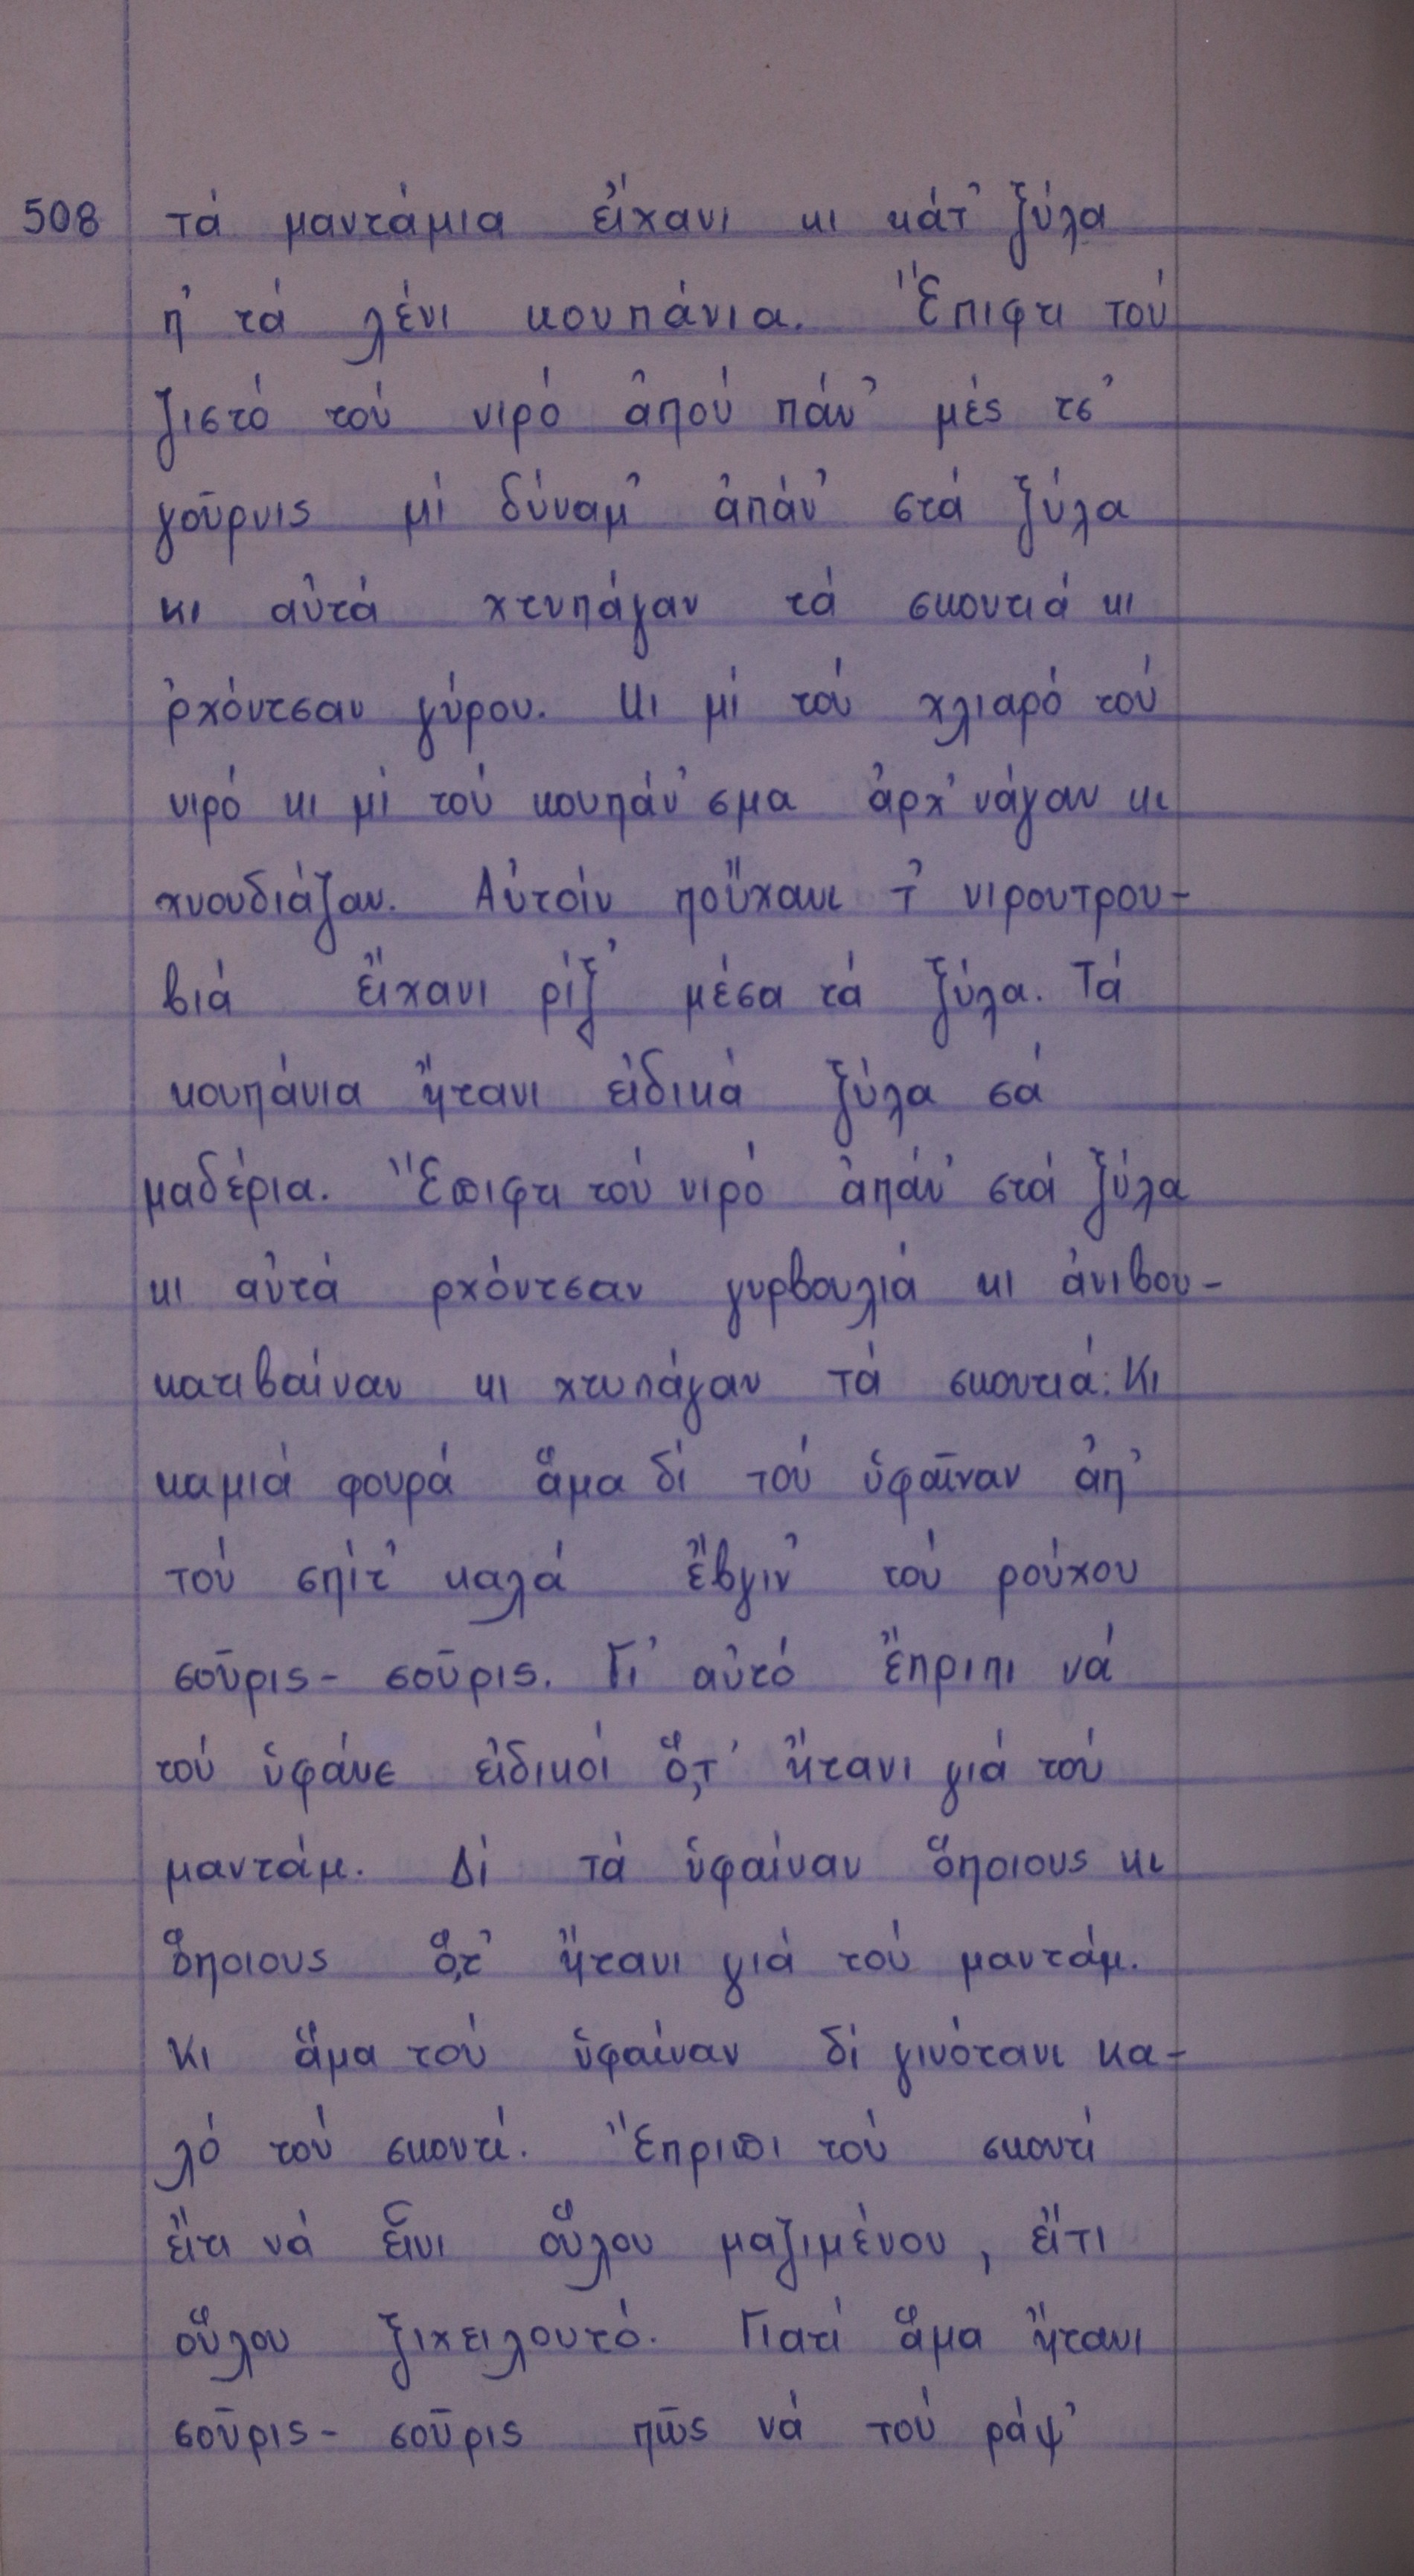 508 τά μαντάμια εἴχανι κι κάτ' ξύλα
π' τά λένι κουπάνια. Ἔπιφτι τού
ζιστό τού νιρό ἀπού πάν' μές τσ'
γοῦρνις μί δύναμ' ἀπάν' στά ξύλα
κι αὐτά χτυπάγαν τά σκουτιά κι
ρχόντσαν γύρου. Κι μί τού χλιαρό τού
νιρό κι μί τού κουπάν'σμα ἀρχ'νάγαν κι
χνουδιάζαν. Αὐτοίν ποὔχανι τ' νιρουτρου-
βιά εἴχανι ρίξ' μέσα τά ξύλα. Τά
κουπάνια ἤτανι εἰδικά ξύλα σά
μαδέρια. Ἔπιφτι τού νιρό ἀπάν' στά ξύλα
κι αὐτά ρχόντσαν γυρβουλιά κι ἀνιβου-
κατιβαίναν κι χτυπάγαν τά σκουτιά. Κι
καμιά φουρά ἅμα δί τού ὑφαῖναν ἀπ'
τού σπίτ' καλά ἔβγιν' τού ρούχου
σοῦρις - σοῦρις. Γι' αὐτό ἔπριπι νά
τού ὑφάνε εἰδικοί ὅ,τ' ἤτανι γιά τού
μαντάμ. Δί τά ὑφαίναν ὅποιους κι
ὅποιους ὅ,τ' ἤτανι γιά τού μαντάμ.
Κι ἅμα τού ὑφαίναν δί γινότανι κα-
λό τού σκουτί. Ἔπριπι τού σκουτί
εἴτι νά εἶνι οὕλου μαζιμένου, εἴτι
οὕλου ξιχειλουτό. Γιατί ἅμα ἤτανι
σοῦρις - σοῦρις πῶς νά τού ράψ'